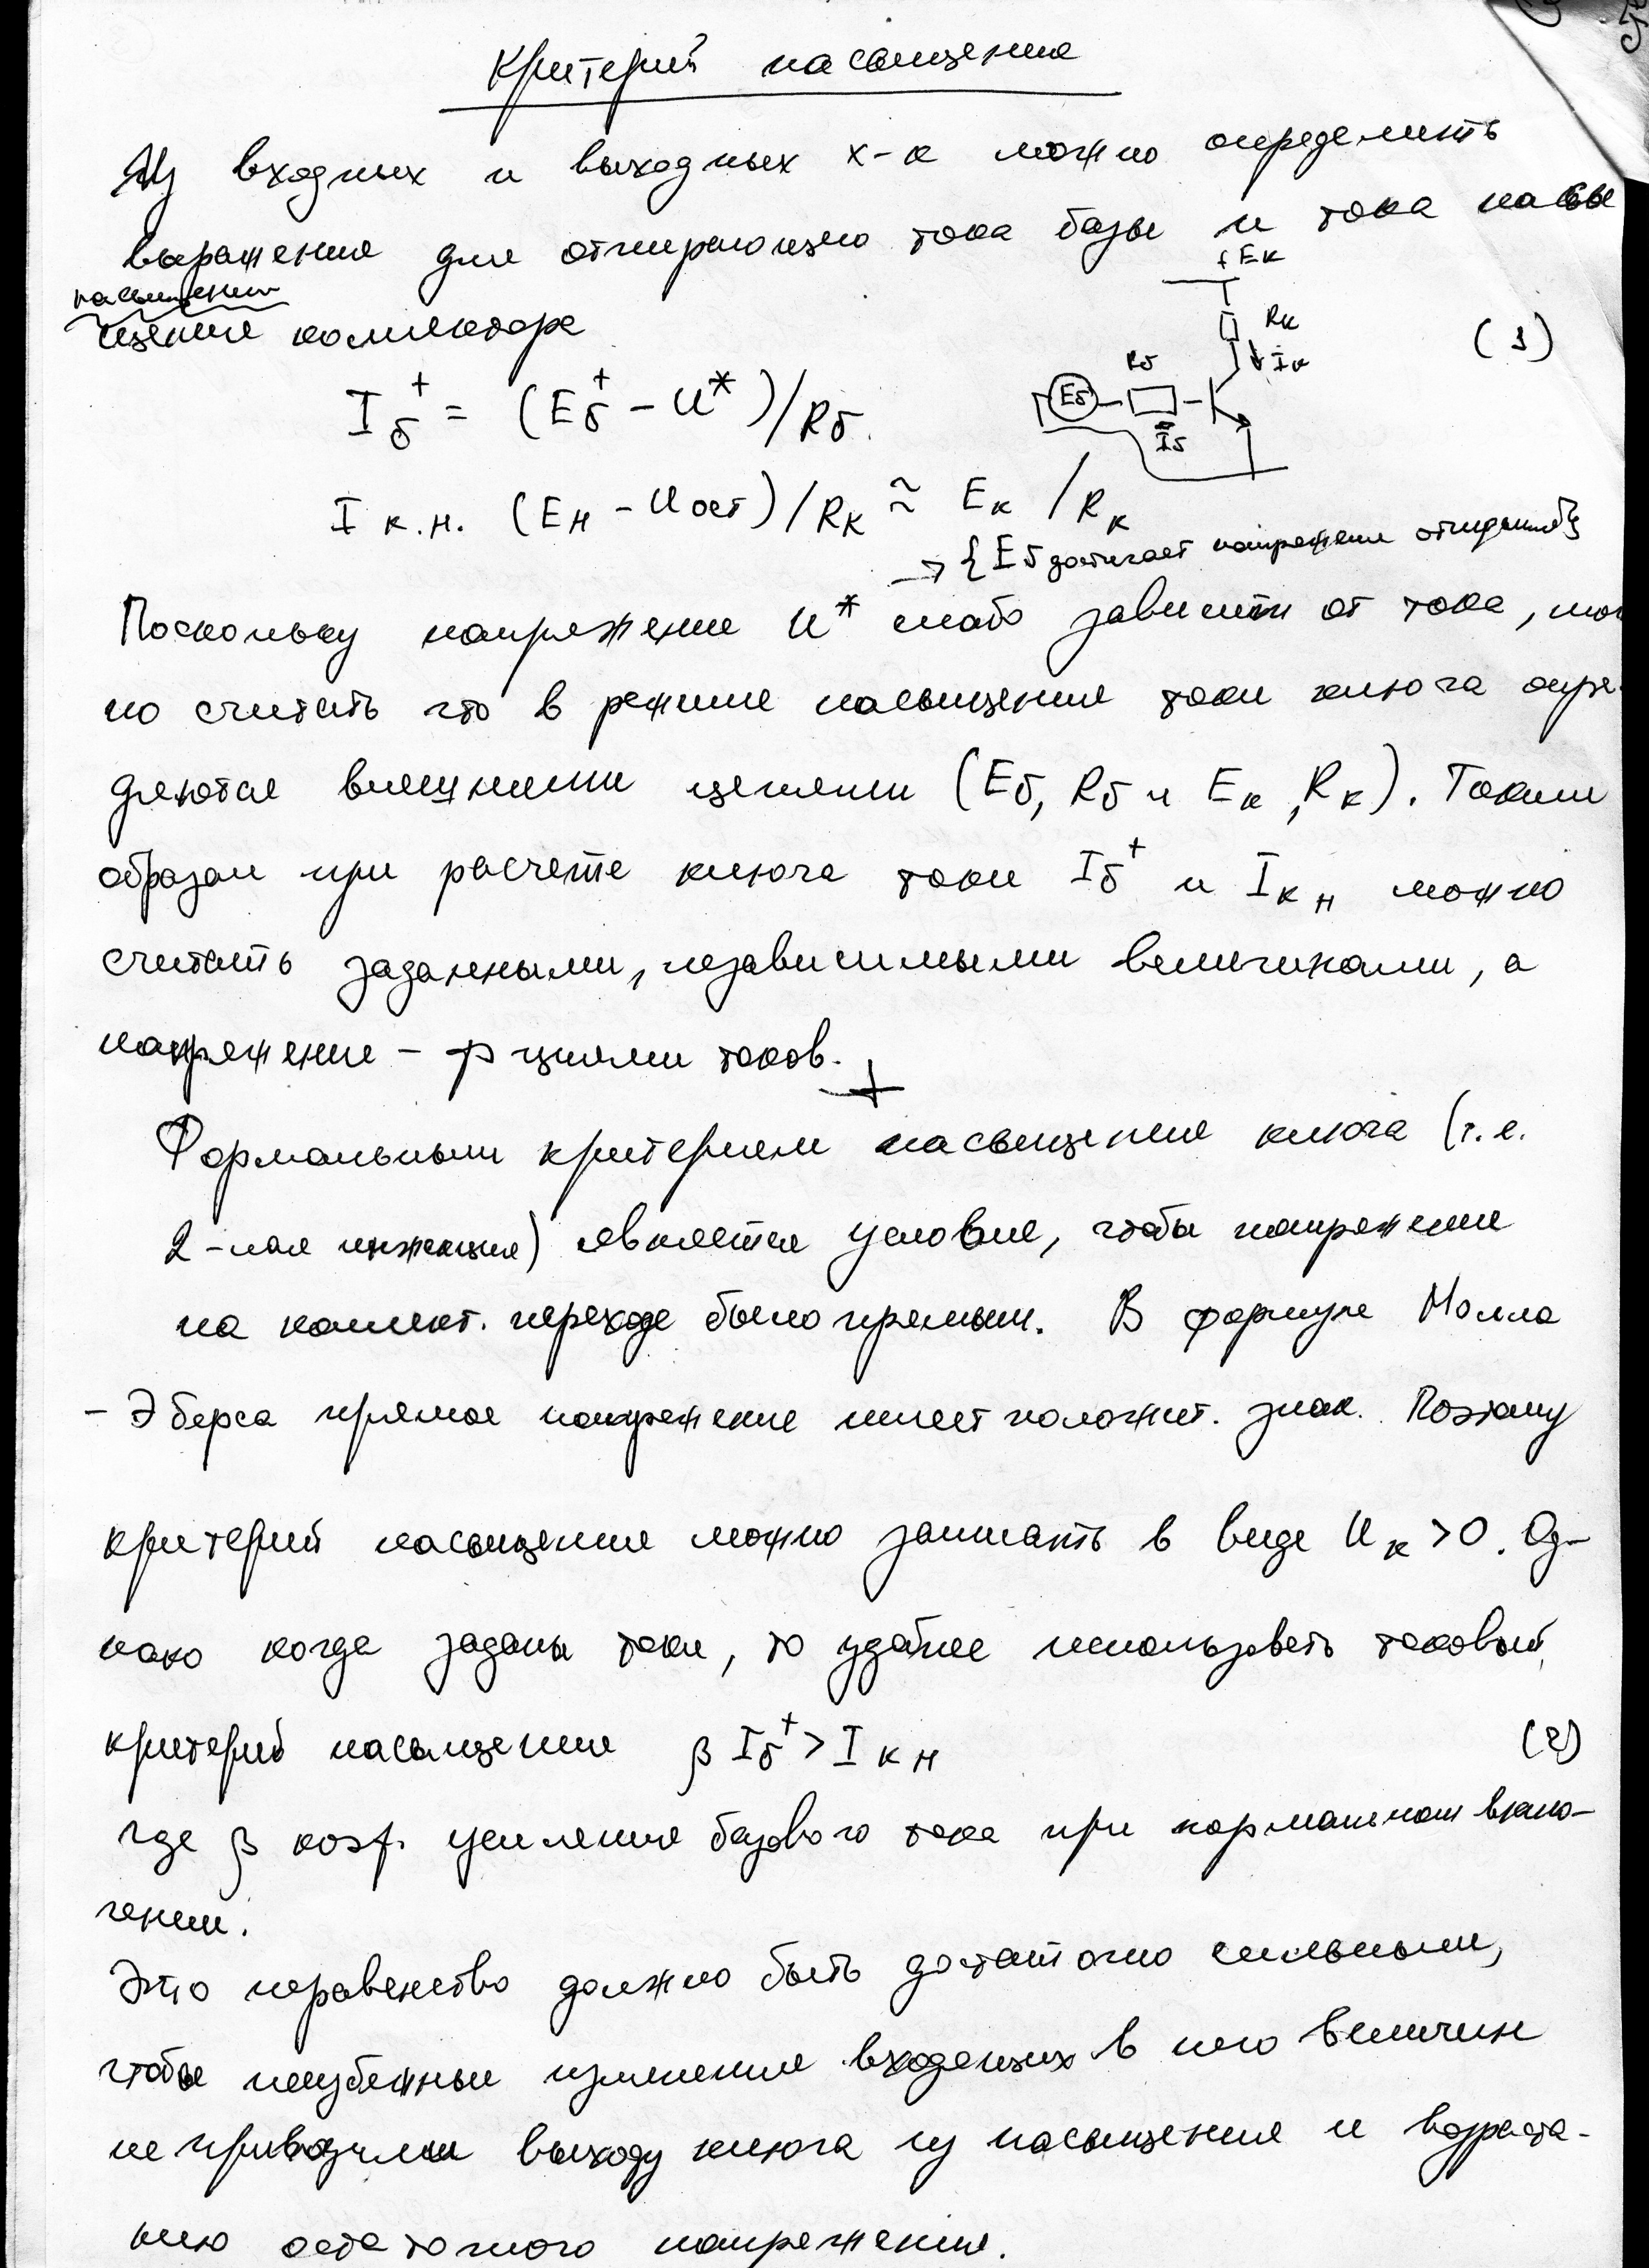 Критерий насыщения
Из входных и выходных х-к можно определить
выражения для отпирающего тока базы и тока насы
насыщения
щения коллектора
+ Eк
Rк
Iк
Rб
Eб
Iб
(1)
I б⁺ = (Eб⁺ - U*)/Rб.
I к.н. (Eн - Uост)/Rк ≈ Eк / Rк
→ {Eб достигает напряжения отпирания}
Поскольку напряжение U* слабо зависит от тока, мож
но считать что в режиме насыщения токи ключа опре-
деляются внешними цепями (Eб, Rб и Eк, Rк). Таким
образом при расчете ключа токи Iб⁺ и Iк н можно
считать заданными, независимыми величинами, а
напряжение - ф циями токов.
Формальным критерием насыщения ключа (т.е.
2-ная инжекция) является условие, чтобы напряжение
на коллект. переходе было прямым. В формуле Молла
- Эберса прямое напряжение имеет положит. знак. Поэтому
критерий насыщения можно записать в виде Uк >0. Од-
нако когда заданы токи, то удобнее использовать токовый
критерий насыщения β Iб⁺ > I к н (2)
где β коэф. усиления базового тока при нормальном вклю-
чении.
Это неравенство должно быть достаточно сильным,
чтобы неизбежные изменения входящих в него величин
не приводили выходу ключа из насыщения и возраста-
нию остаточного напряжения.